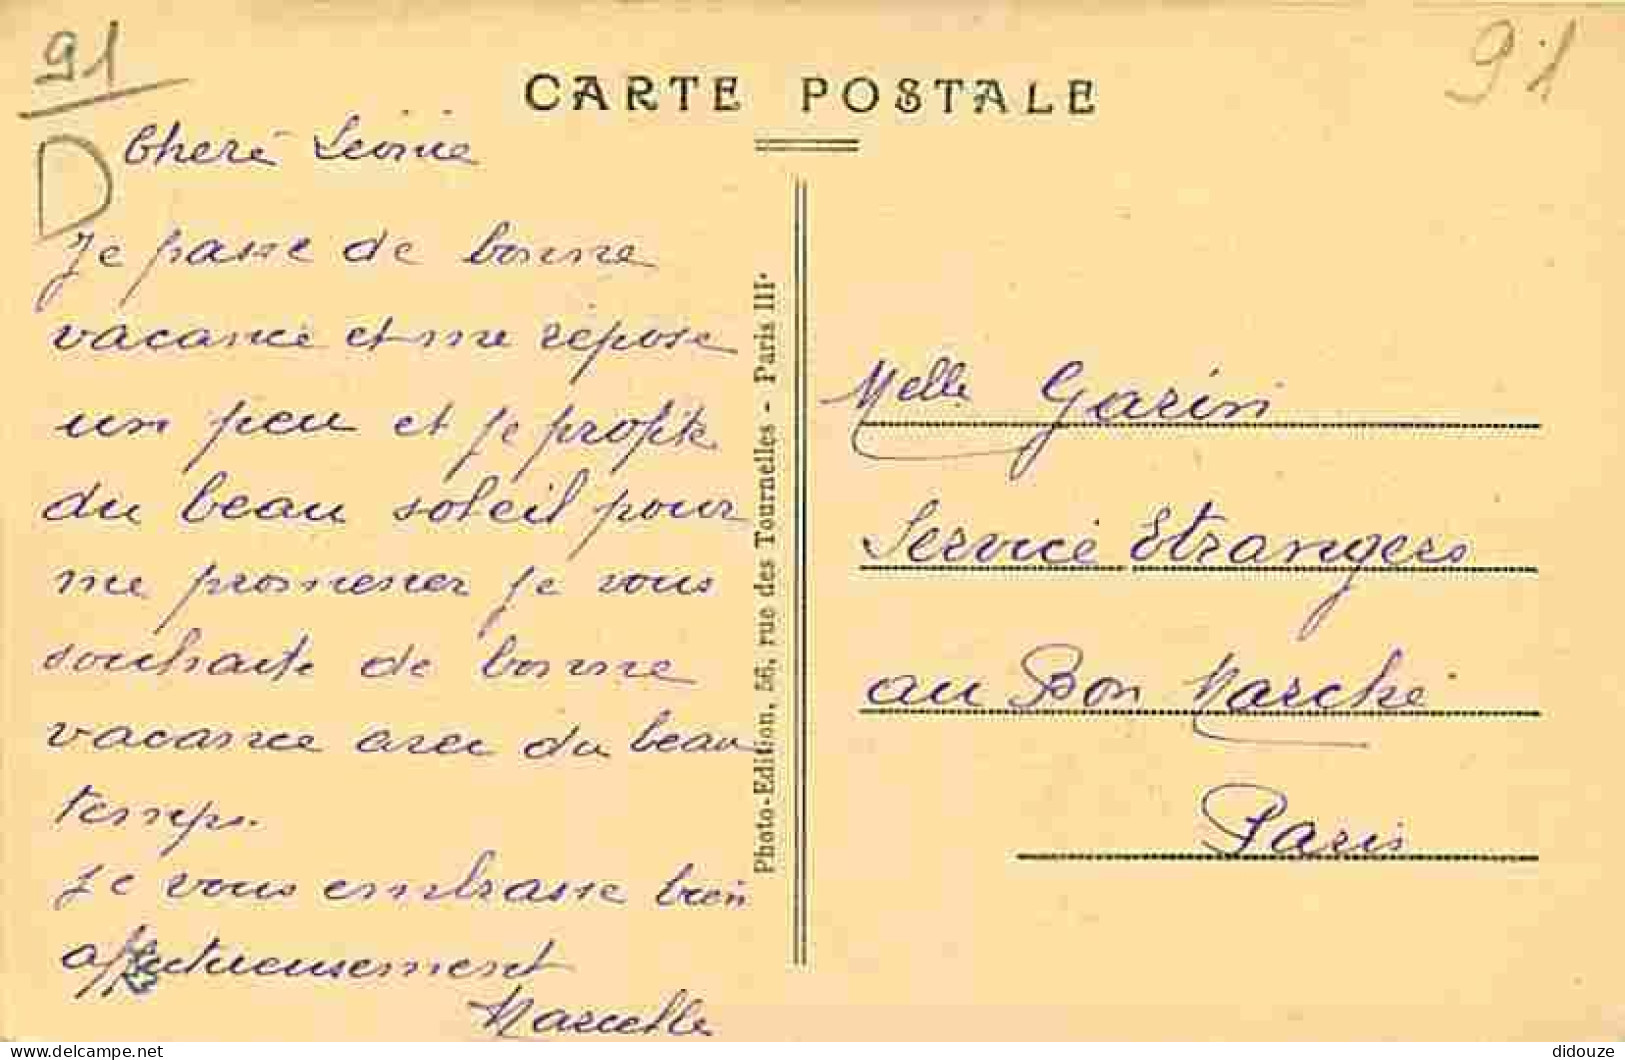 91
91
CARTE POSTALE
D
Cheré Léonie
Je passe de bonne
vacance et me repose
un peu et je profite
du beau soleil pour
me promener je vous
souhaite de bonne
vacance avec du beau
temps.
Je vous embrasse bien
affectueusement
Marcelle
Photo-Edition, 56, rue des Tournelles - Paris IIIe
Melle Garin
Service Etrangers
au Bon Marché
Paris
delcampe.net
didouze